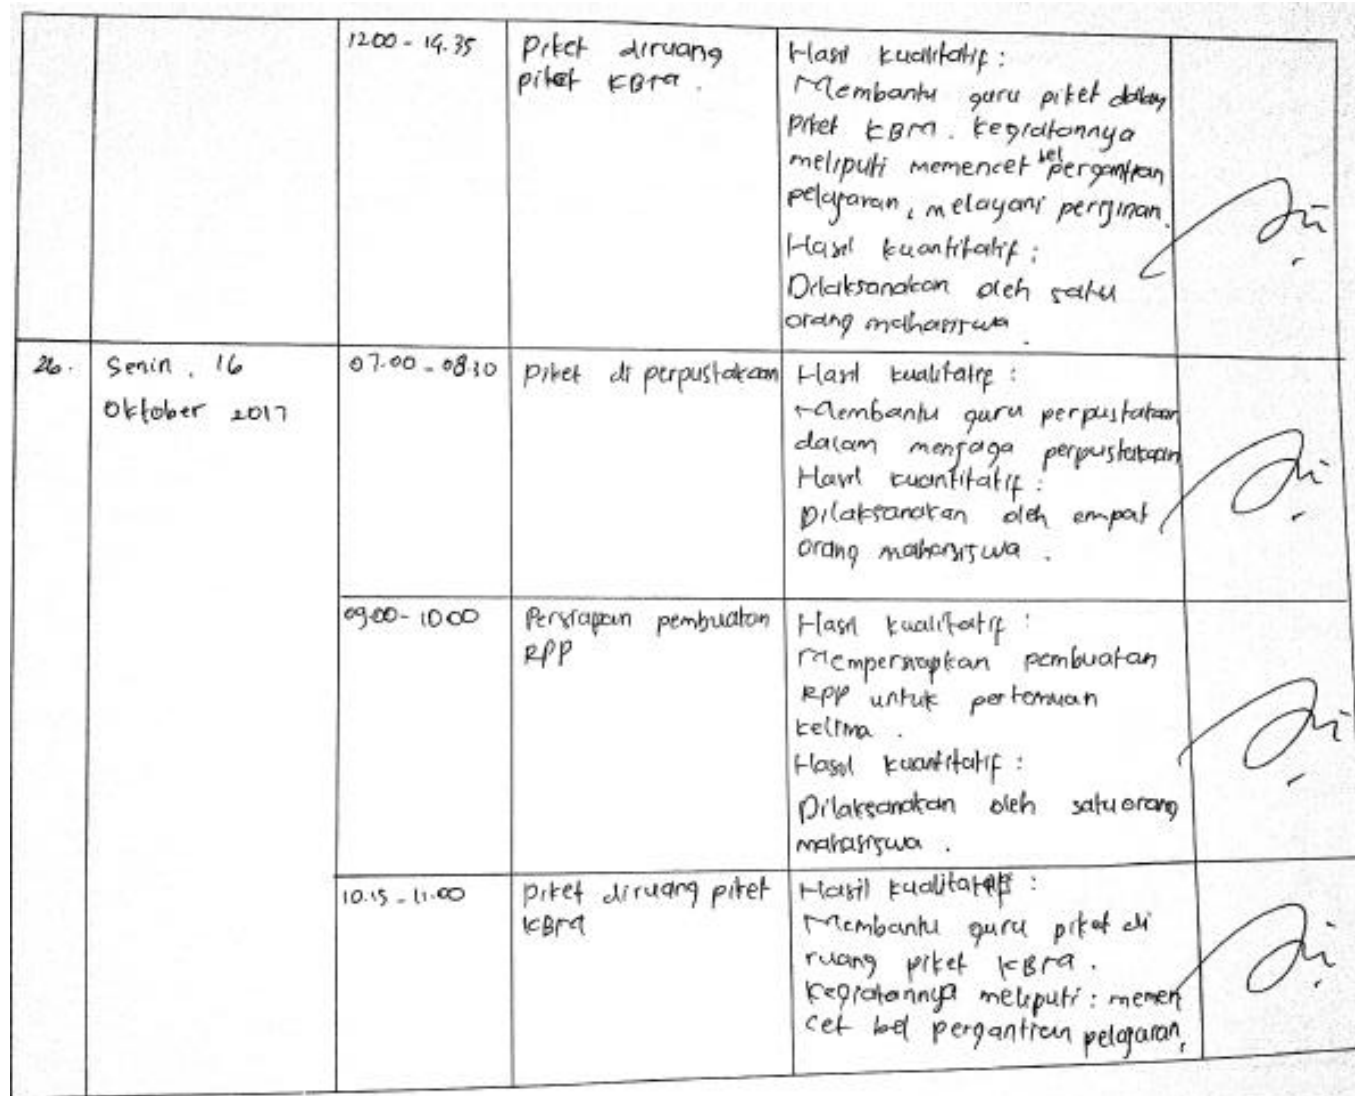 12.00 - 14.35
Piket diruang
piket KBM.
Hasil kualitatif :
Membantu guru piket dalam
piket KBM. Kegiatannya
meliputi memencet bel pergantian
pelajaran, melayani perijinan.
Hasil kuantitatif :
Dilaksanakan oleh satu
orang mahasiswa.
26.
Senin, 16
Oktober 2017
07.00 - 08.30
Piket di perpustakaan
Hasil kualitatif :
Membantu guru perpustakaan
dalam menjaga perpustakaan
Hasil kuantitatif :
Dilaksanakan oleh empat
orang mahasiswa.
09.00 - 10.00
Persiapan pembuatan
RPP
Hasil kualitatif :
Mempersiapkan pembuatan
RPP untuk pertemuan
kelima.
Hasil kuantitatif :
Dilaksanakan oleh satu orang
mahasiswa.
10.15 - 11.00
Piket diruang piket
KBM
Hasil kualitatif :
Membantu guru piket di
ruang piket KBM.
Kegiatannya meliputi : memen
cet bel pergantian pelajaran,